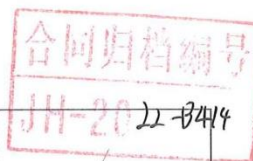 合同归档编号
JH-2022-B4414